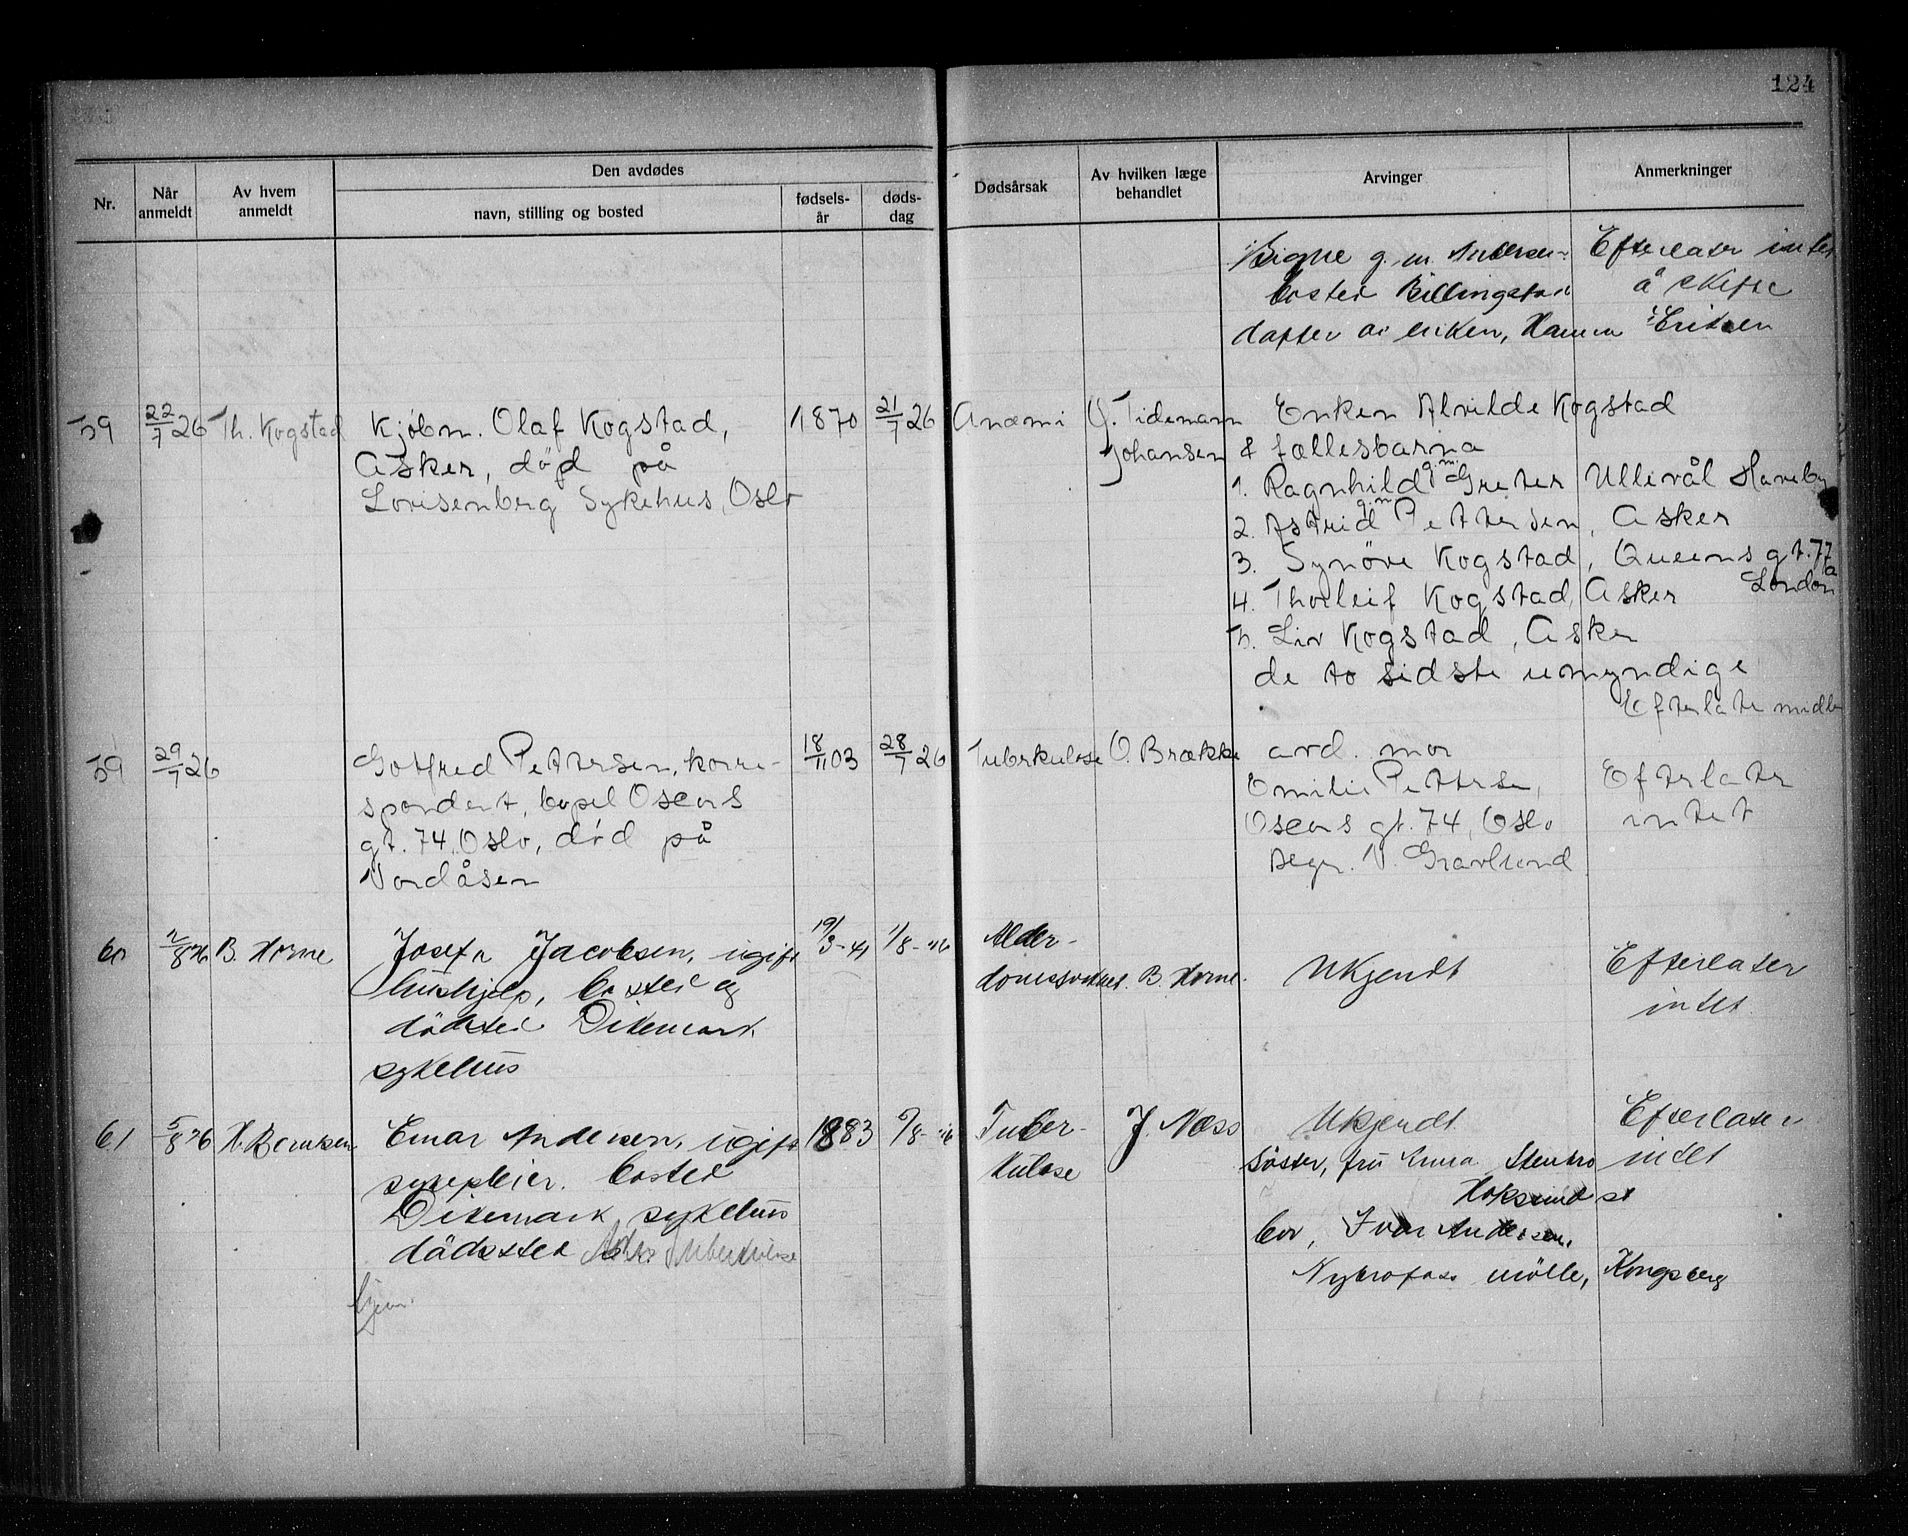 124
Nr.
Når anmeldt
Av hvem anmeldt
Den avdødes
navn, stilling og bosted
fødsels-år
døds-dag
Dødsårsak
Av hvilken læge behandlet
Arvinger
Anmerkninger
Signe g. m. Andersen
bosted Billingstad
datter av enken, Hanna Eriksen
Efterlater intet
å skifte
59
22/7 26
Th. Kogstad
Kjøbm. Olaf Kogstad,
Asker, død på
Lovisenberg Sykehus, Oslo
1870
21/7 26
Anæmi
O. Tidemann
Johansen
Enken Alvilde Kogstad
& fællesbarna
1. Ragnhild g.m. Greter Ullevål Haveby
2. Astrid g.m. Pettersen, Asker
3. Synöve Kogstad, Queens gt. 77a
London
4. Thorleif Kogstad, Asker
5. Liv Kogstad, Asker
de to sidste umyndige
Efterlate midler
59
29/7 26
Gotfred Pettersen, korre-
spondent, bopel Oscars
gt. 74, Oslo, død på
Nordåsen
18/11 03
28/7 26
Tuberkulose
O. Brække
arv. mor
Emilie Pettersen,
Oscars gt. 74, Oslo
begr. V. Gravlund
Efterlater
intet
60
2/8 26
B. Horne
Josefa Jacobsen, ugift
hushjelp, bosted og
dödsted Dikemark
sykehus
19/3-41
1/8-26
Alder-
domssvakhet
B. Horne
Ukjendt
Efterlater
intet
61
5/8 26
H. Berntsen
Einar Andersen, ugift
sykepleier. bosted
Dikemark sykehus
dödsted Asker Tuberkulose
hjem
1883
5/8-26
Tuber-
kulose
J. Næss
Ukjendt
söster, fru Anna Stenbro
Hoksund st
bror, Ivar Andersen,
Nybrofoss mölle, Kongsberg
Efterlater
intet